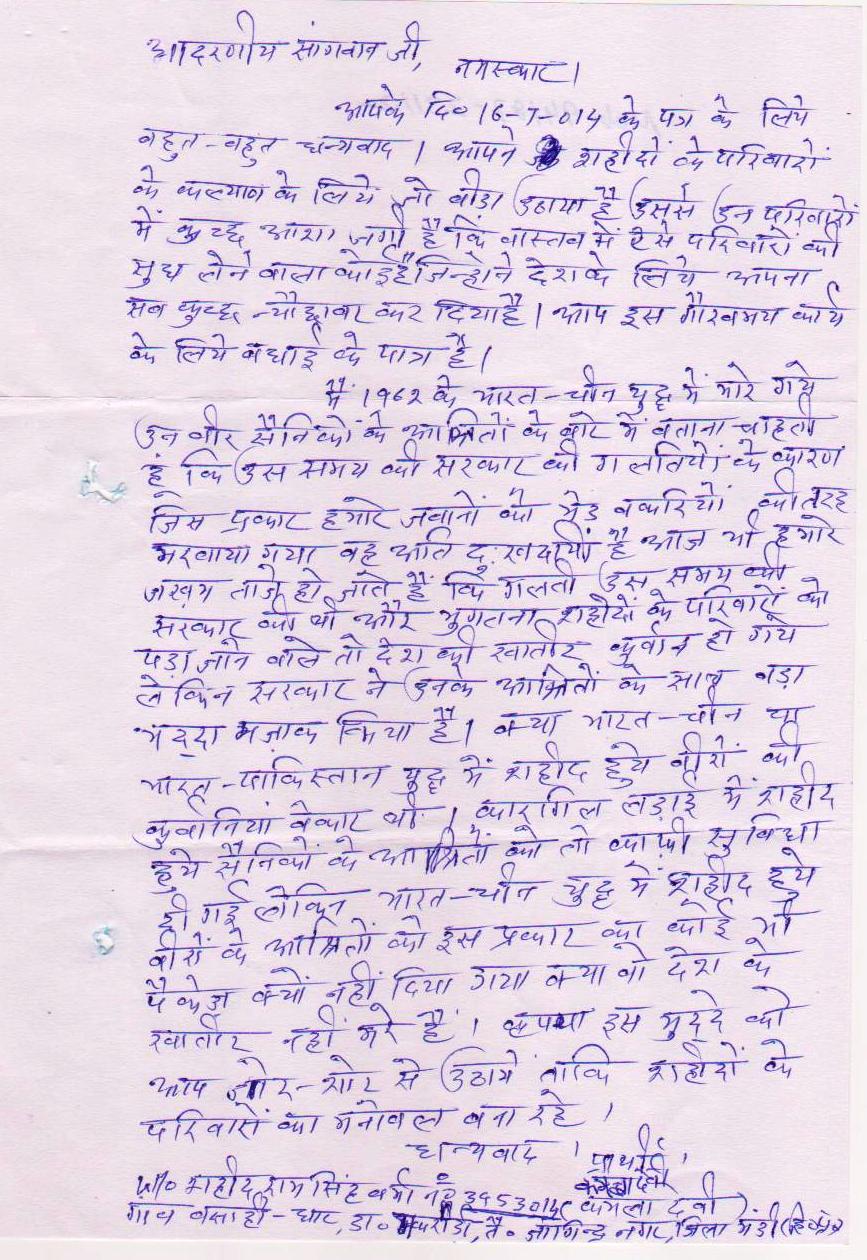 आदरणीय सांगवान जी,
नमस्कार।
आपके दि० 16-7-014 के पत्र के लिये
बहुत-बहुत धन्यवाद। आपने शहीदों के परिवारों
के कल्याण के लिये जो बीड़ा उठाया है उससे उन परिवारों
में कुच्छ आशा जगी है कि वास्तव में ऐसे परिवारों की
सुध लेने वाला कोई है जिन्होने देश के लिये अपना
सब कुच्छ न्यौछावर कर दिया है। आप इस गौरवमय कार्य
के लिये बधाई के पात्र है।
मैं 1962 के भारत-चीन युद्ध में मारे गये
उन वीर सैनिकों के आश्रितों के बारे में बताना चाहती
हूं कि उस समय की सरकार की गलतियों के कारण
जिस प्रकार हमारे जवानों को भेड़ बकरियों की तरह
मरवाया गया वह अति दु:खदायी है आज भी हमारे
जख़म ताजे हो जाते हैं कि गलती उस समय की
सरकार की थी और भुगतना शहीदों के परिवारों को
पड़ा जाने वाले तो देश की खातीर कुर्वान हो गये
लेकिन सरकार ने उनके आश्रितों के साथ बड़ा
भद्दा मज़ाक किया है। क्या भारत-चीन या
भारत-पाकिस्तान युद्ध में शहीद हुये वीरों की
कुर्वानियां बेकार थी। कारगिल लड़ाई में शहीद
हुये सैनिकों के आश्रितों को तो काफी सुविधा
दी गई लेकिन भारत-चीन युद्ध में शहीद हुये
वीरों के आश्रितों को इस प्रकार का कोई भी
पैकेज क्यों नहीं दिया गया क्या वो देश के
खातीर नहीं मरे हैं। कृपया इस मुद्दे को
आप जोर-शोर से उठायें ताकि शहीदों के
परिवारों का मनोबल बना रहे।
धन्यवाद। प्रार्थी।
W/o शहीद राम सिंह वर्मा नं० (कमला देवी)
गांव बसाही-धार, डा०, तै० जोगिन्द्र नगर, जिला मंडी (हि०प्र०)